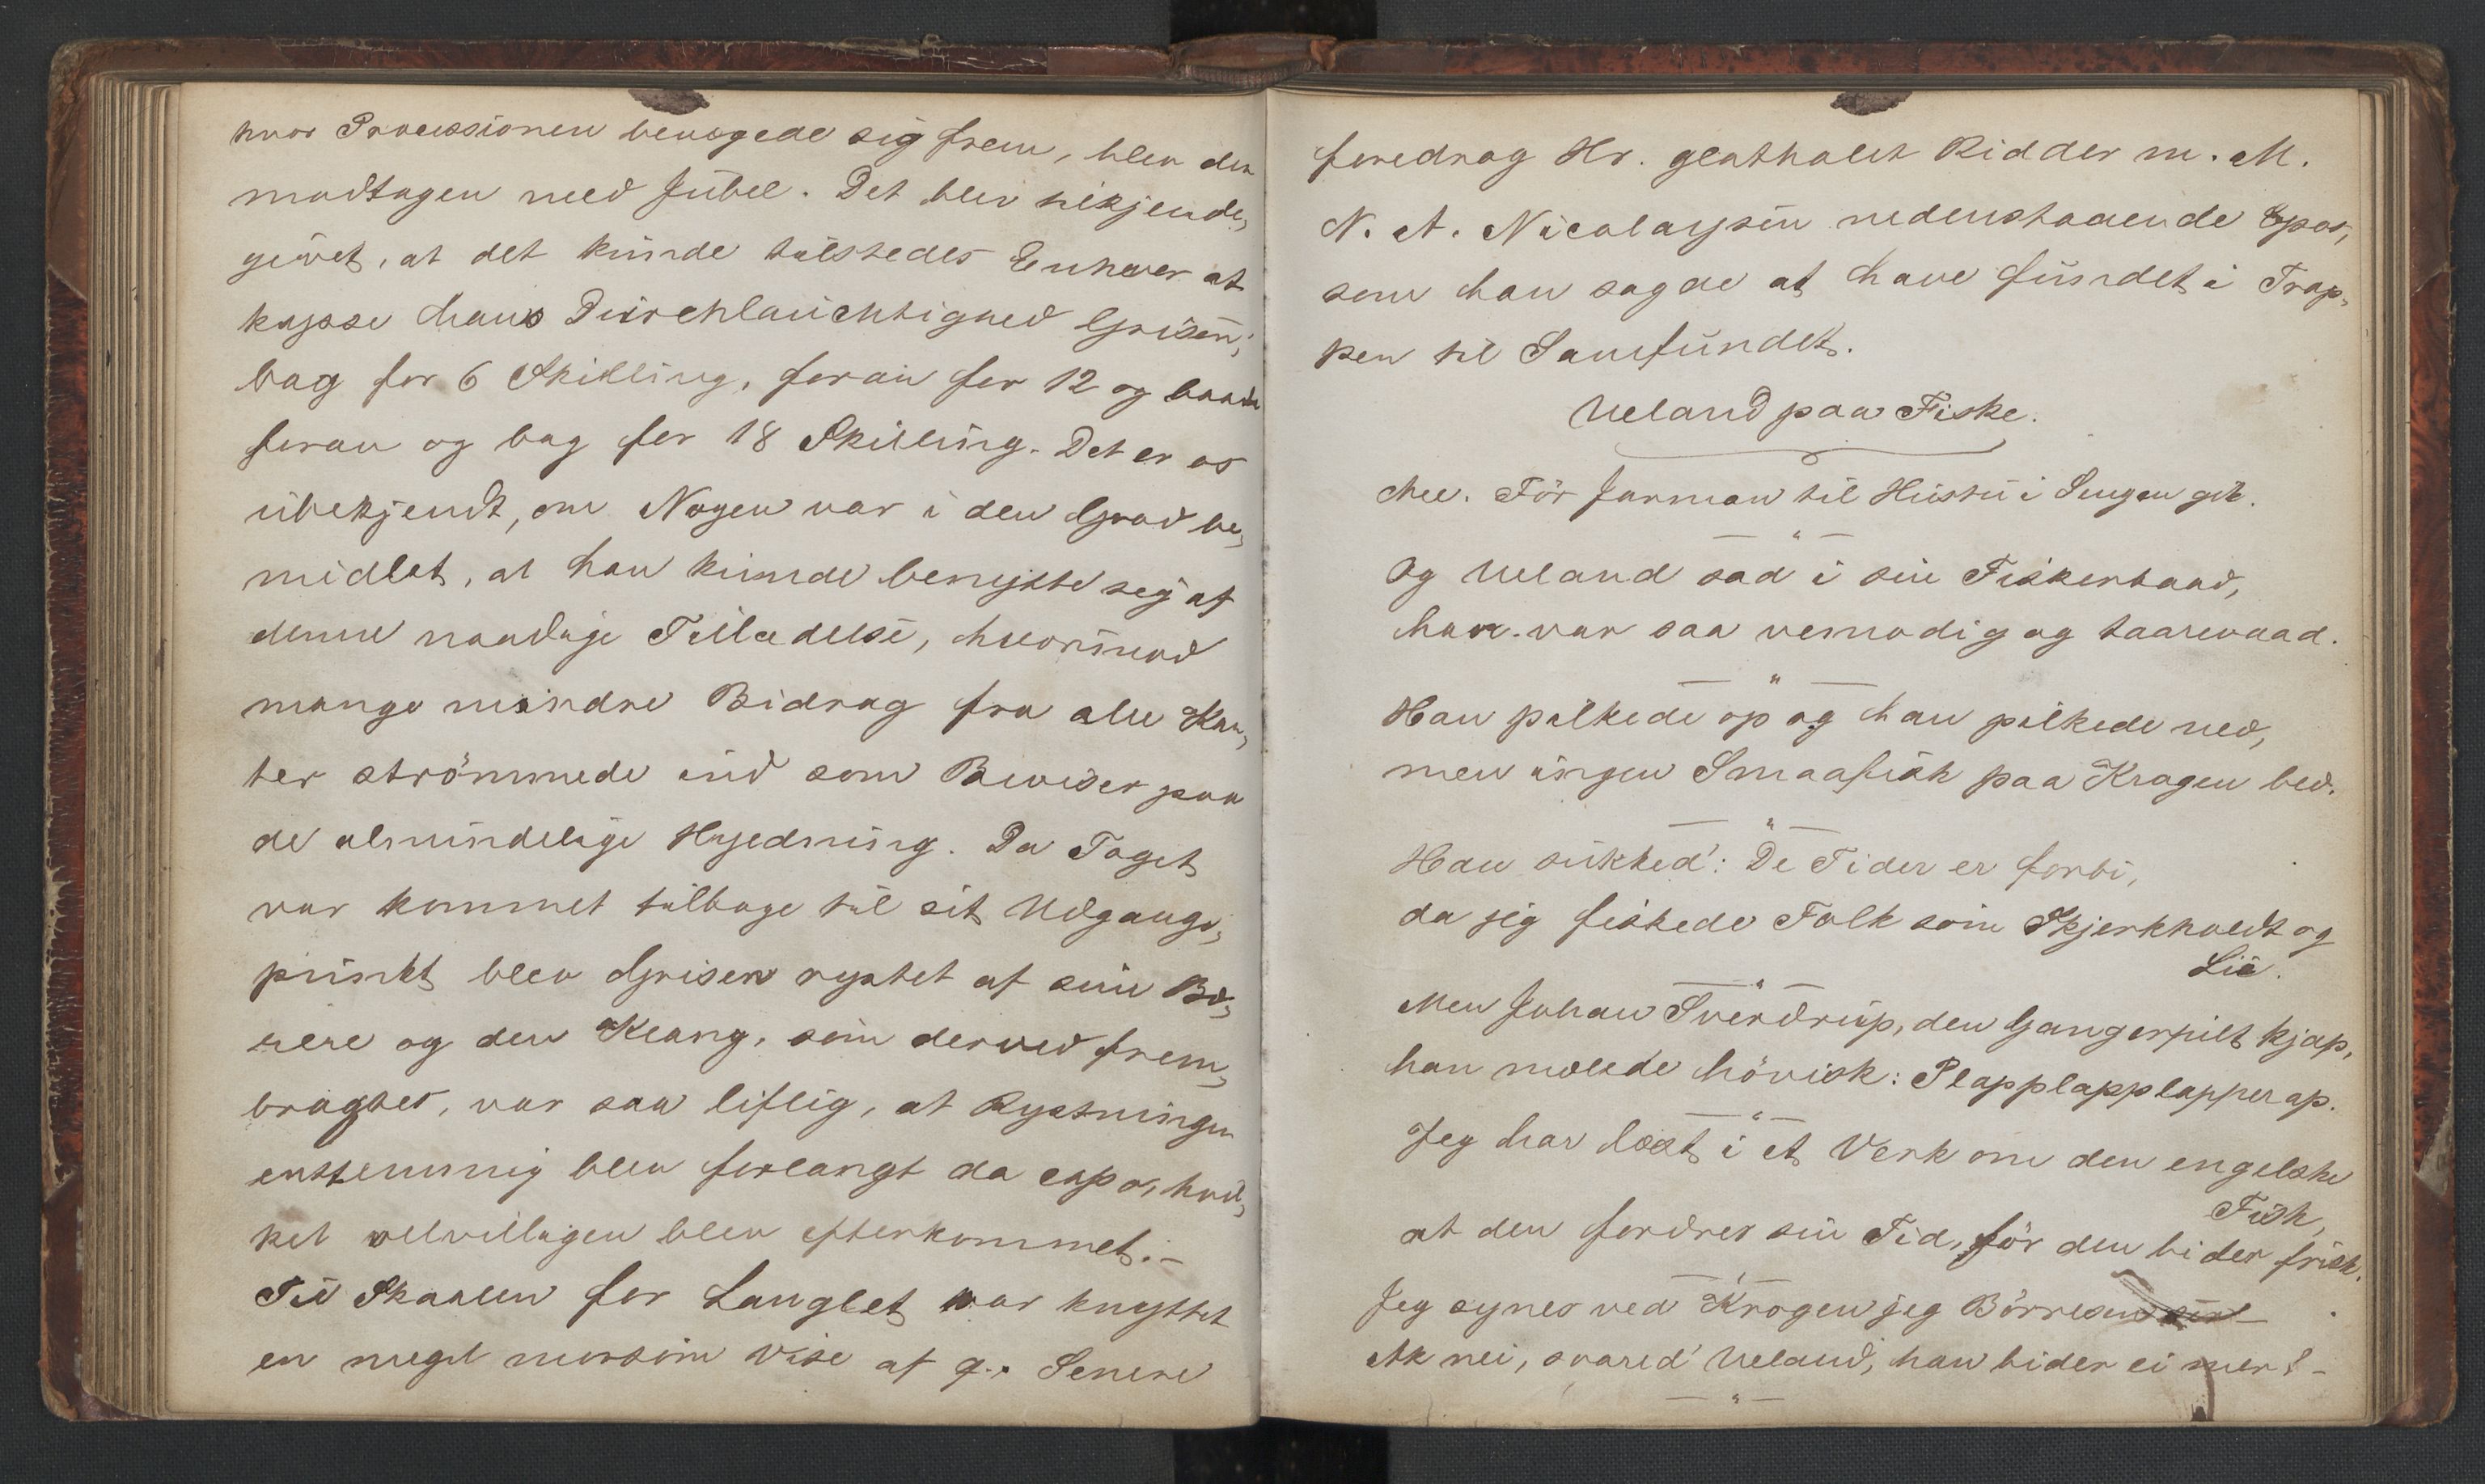 hvor Processionen bevægede sig frem, blev den
modtagen med Jubel. Det blev tilkjende,
givet, at det kunde tilstedes Enhver at
kysse hans Durchlauchtighed Grisen;
bag for 6 Skilling, foran for 12 og baade
foran og bag for 18 Skilling. Det er os
ubekjendt, om Nogen var i den Grad be,
midlet, at han kunde benytte sig af
denne naadige Tilladelse, hvorimod
mange mindre Bidrag fra alle Kan,
ter strömmede ind som Beviser paa
de almindelige Hyldning. Da Toget
var kommet tilbage til sit Udgangs,
punkt blev Grisen rystet af sine Bæ,
rere og den Klang, som derved frem,
bragtes, var saa liflig, at Rystningen
enstemmig blev forlangt da capo, hvil,
ket velvilligen blev efterkommet. –
Til Skaalen for Langlet var knyttet
en meget morsom Vise af q.. Senere
foredrag Hr. glathalet Ridder m. M.
N. A. Nicolaysen nedenstaaende Epos,
som han sagde at have fundet i Trap,
pen til Samfundet.
Ueland paa Fiske.
Mel. Før Jarman til Hustu i Sengen gik.
— " —
Og Ueland sad i sin Fiskerbaad,
han var saa vemodig og taarevaad.
— " —
Han pilkede op og han pilkede ned,
men ingen Smaafisk paa Krogen bed.
— " —
Han sukked': De Tider er forbi,
da jeg fiskede Folk som Skjerkholdt og
Lie.
— " —
Men Johan Sverdrup, den Gangerpilt kjap,
han mælede hövisk: Plapplapplapperap.
— " —
Jeg har læst i et Verk om den engelske
Fisk,
at den fordrer sin Tid, för den bider frisk.
— " —
Jeg synes ved Krogen jeg Börresen
Ak nei, svared' Ueland, han bider ei mer! –
— " —